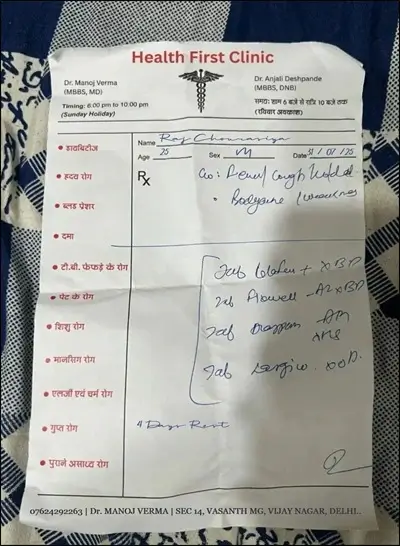 Health First Clinic
Dr. Manoj Verma
(MBBS, MD)
Timing: 6:00 pm to 10:00 pm
(Sunday Holiday)
Dr. Anjali Deshpande
(MBBS, DNB)
समय: शाम 6 बजे से रात्रि 10 बजे तक
(रविवार अवकाश)
Name Raj
Age 25 Sex M Date 31/07/25
Rx
C/o: Fever/ Cough
Bodyache / weakness
Tab + x BD
Tab - x BD
Tab
Tab x OD
4 Days Rest
डायबिटीज
हृदय रोग
ब्लड प्रेशर
दमा
टी.बी. फेफड़े के रोग
पेट के रोग
शिशु रोग
मानसिग रोग
एलर्जी एवं चर्म रोग
गुप्त रोग
पुराने असाध्य रोग
07624292263 | Dr. MANOJ VERMA | SEC 14, VASANTH MG, VIJAY NAGAR, DELHI..